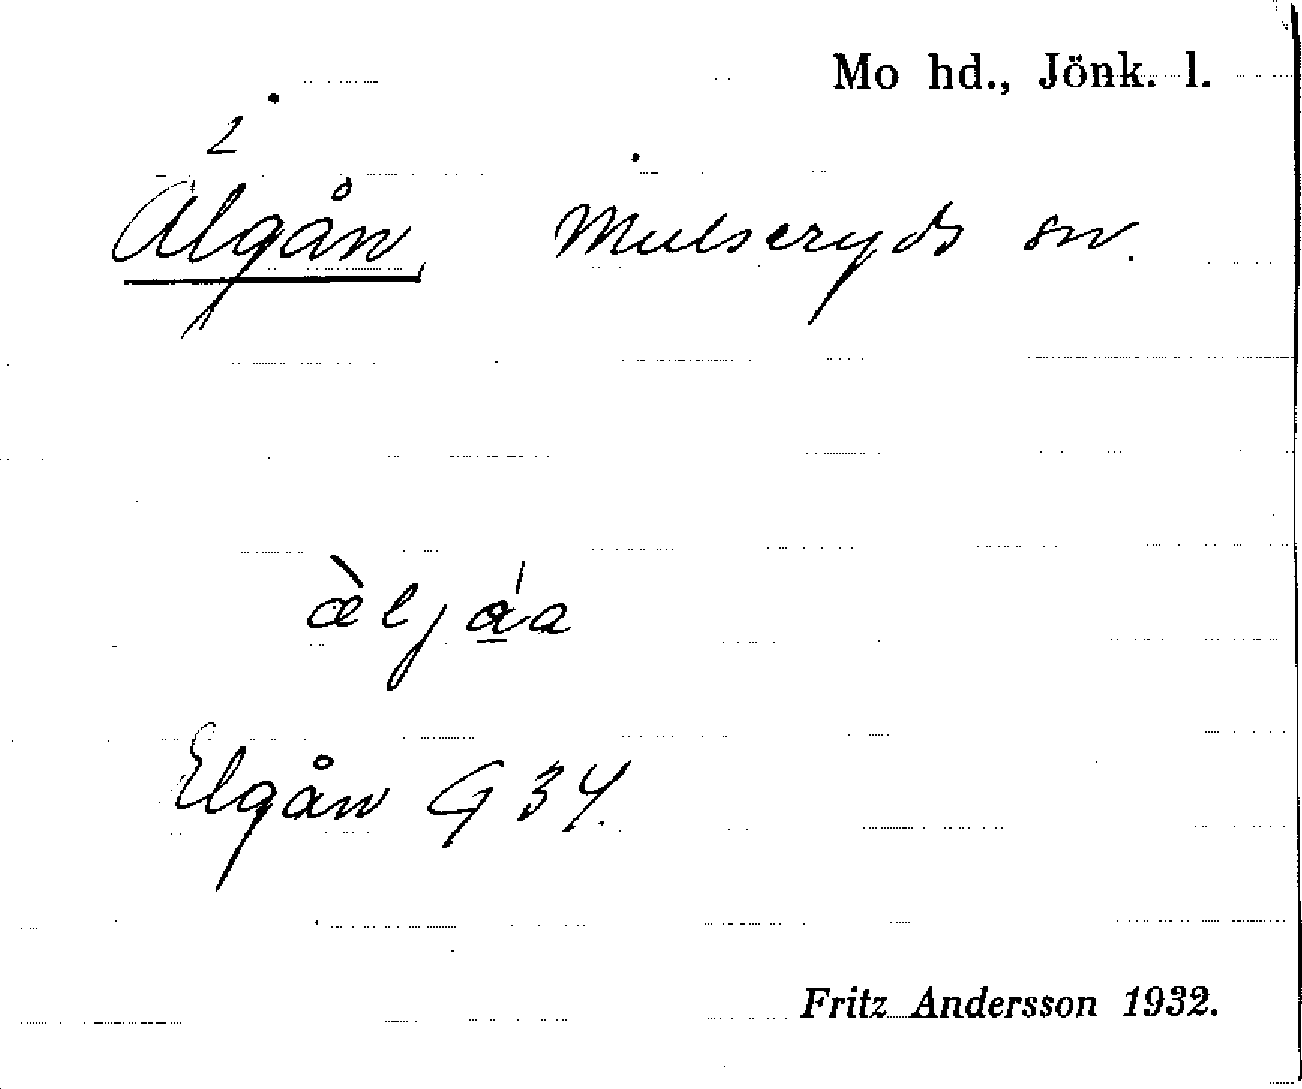 Mo hd., Jönk. l.
2
Älgån, Mulseryds sn.
æ̀ljá̱a
Elgån G 34.
Fritz Andersson 1932.